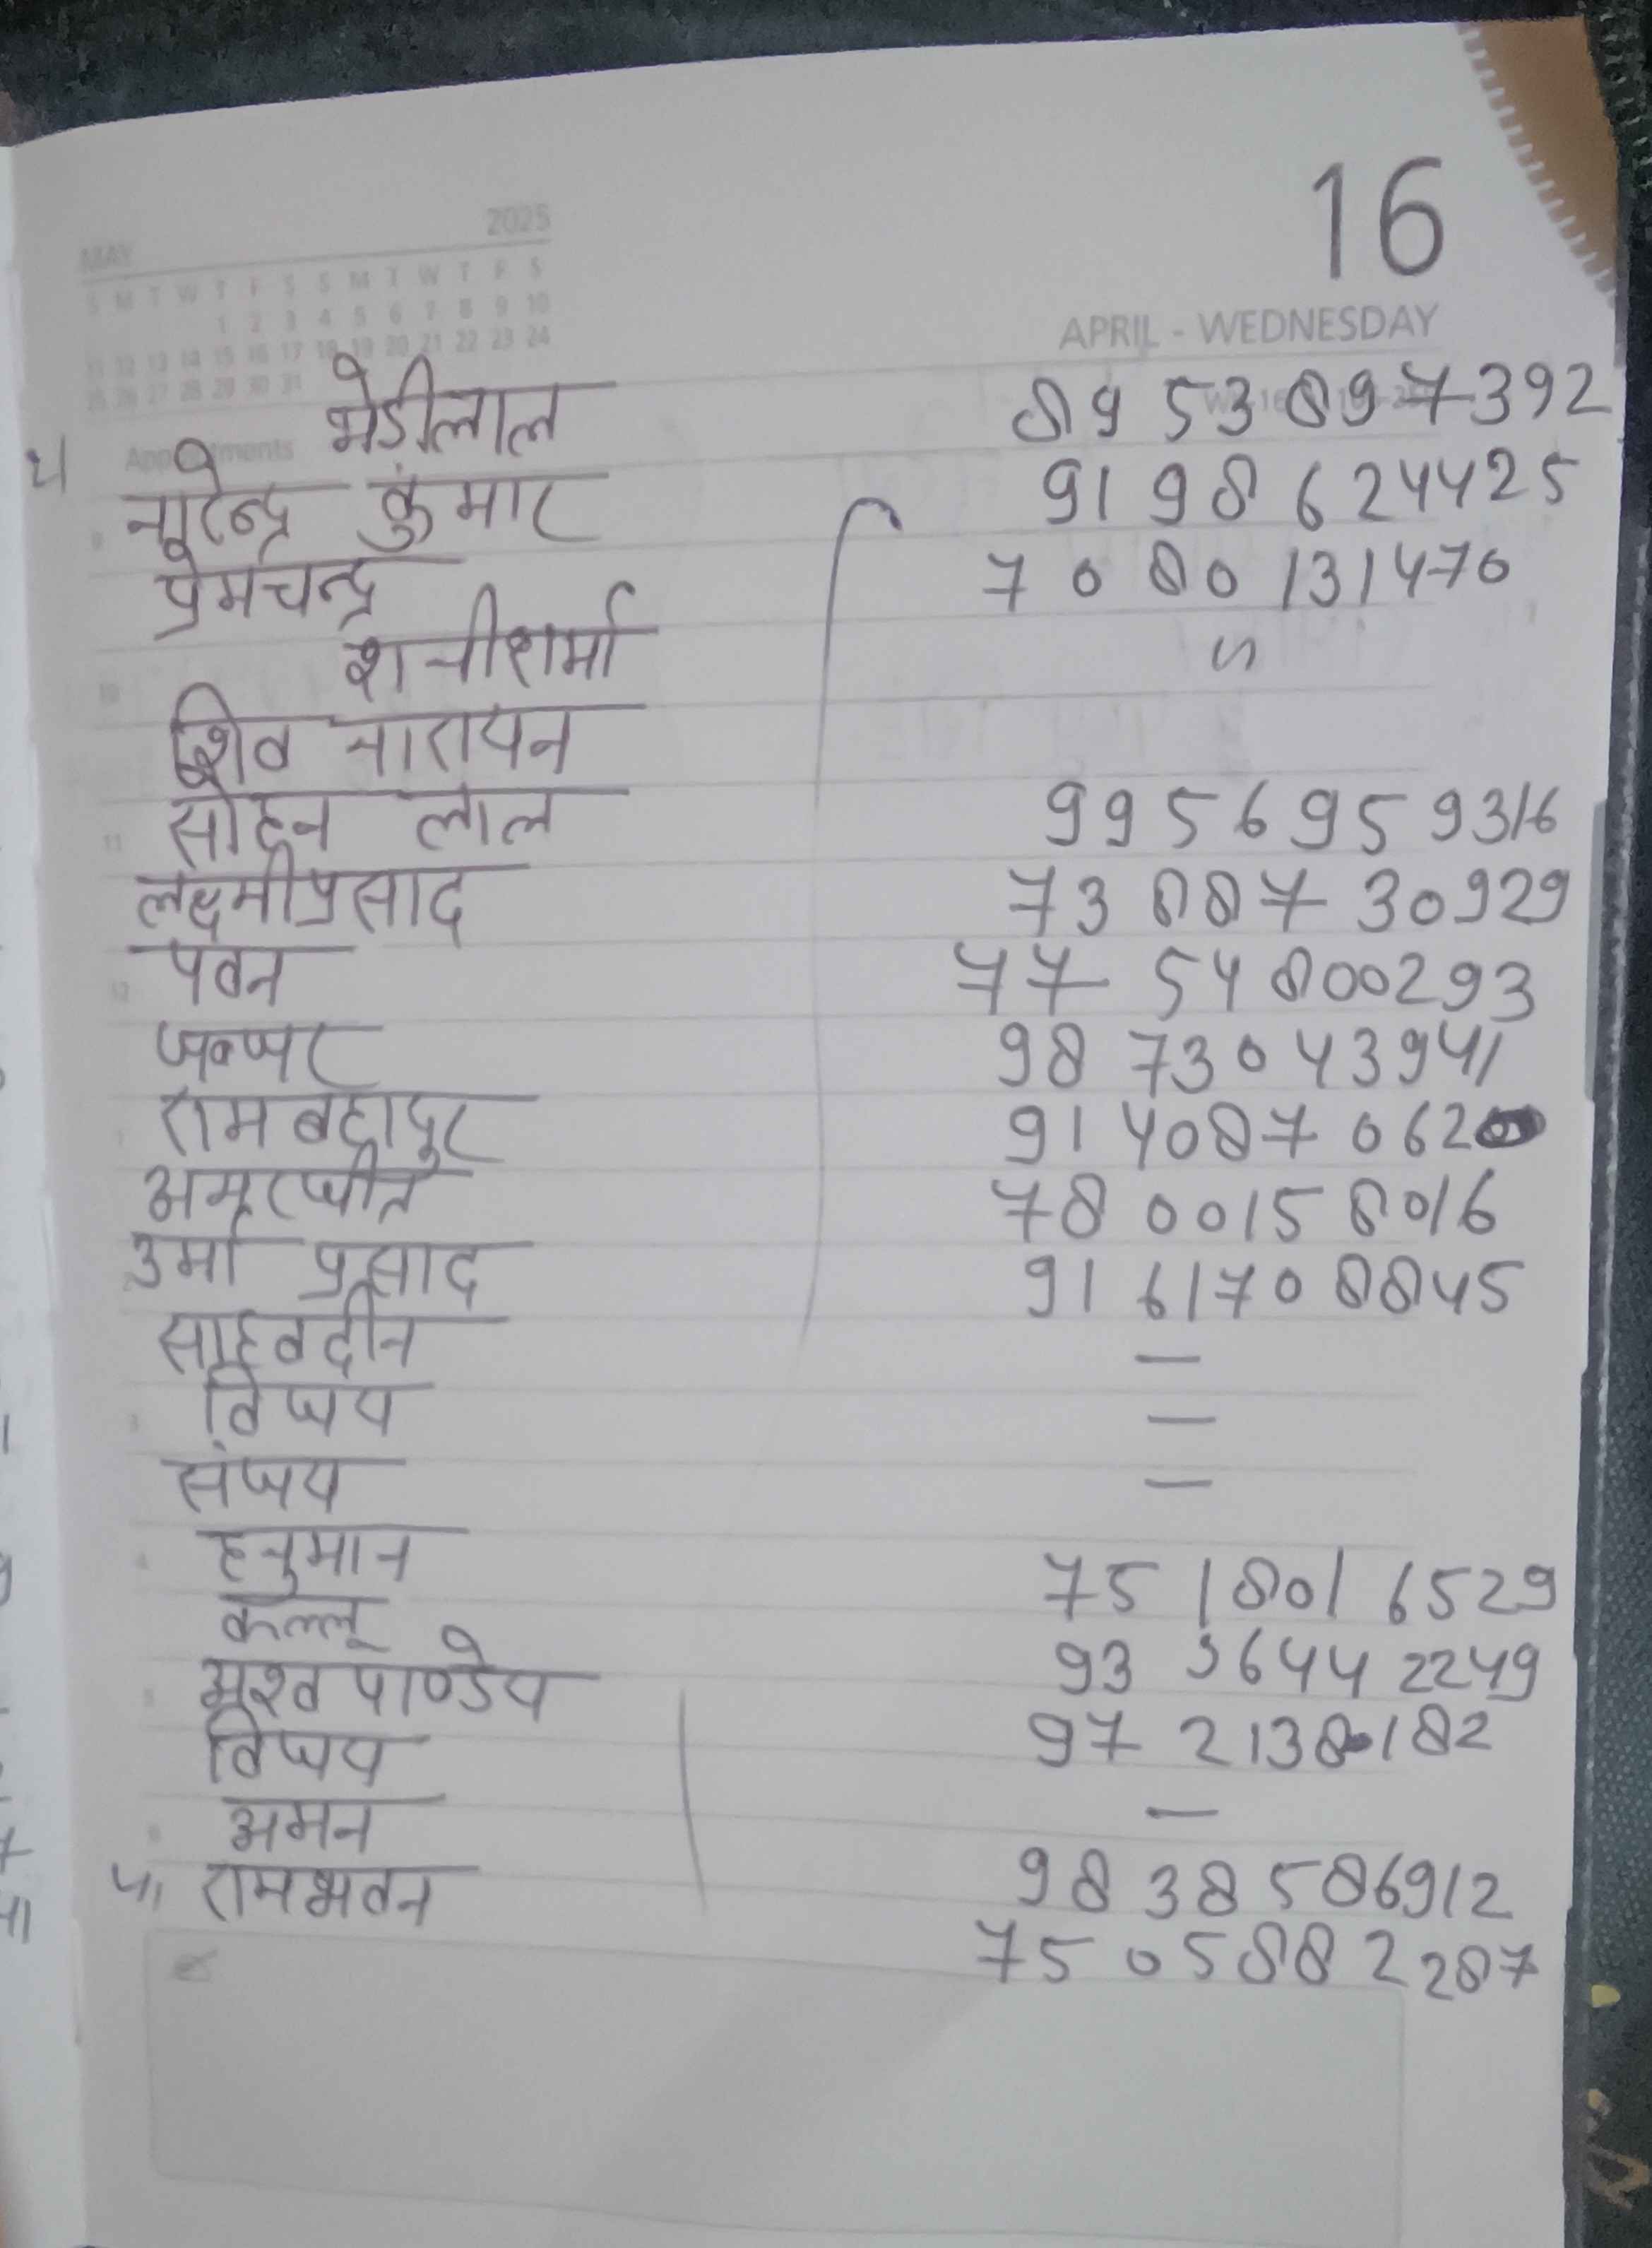 16
MAY 2025
S M T W T F S S M T W T F S
1 2 3 4 5 6 7 8 9 10
11 12 13 14 15 16 17 18 19 20 21 22 23 24
25 26 27 28 29 30 31
APRIL - WEDNESDAY
Appointments
भेडीलाल 8953897392
नरेन्द्र कुमार 9198624425
प्रेमचन्द्र 7080131470
शनीशर्मा
शिव नारायन
सोहन लाल 9956959316
लक्ष्मीप्रसाद 7388730929
पवन 7754800293
9873043941
रामबहादुर 914087062
अमरजीत 7800158016
उमा प्रसाद 9161708845
साहबदीन —
विजय —
संजय —
हनुमान 7518016529
कल्लू 93 644 2249
पाण्डेय 972138 182
विजय —
अमन 9838586912
रामभवन 7505882287